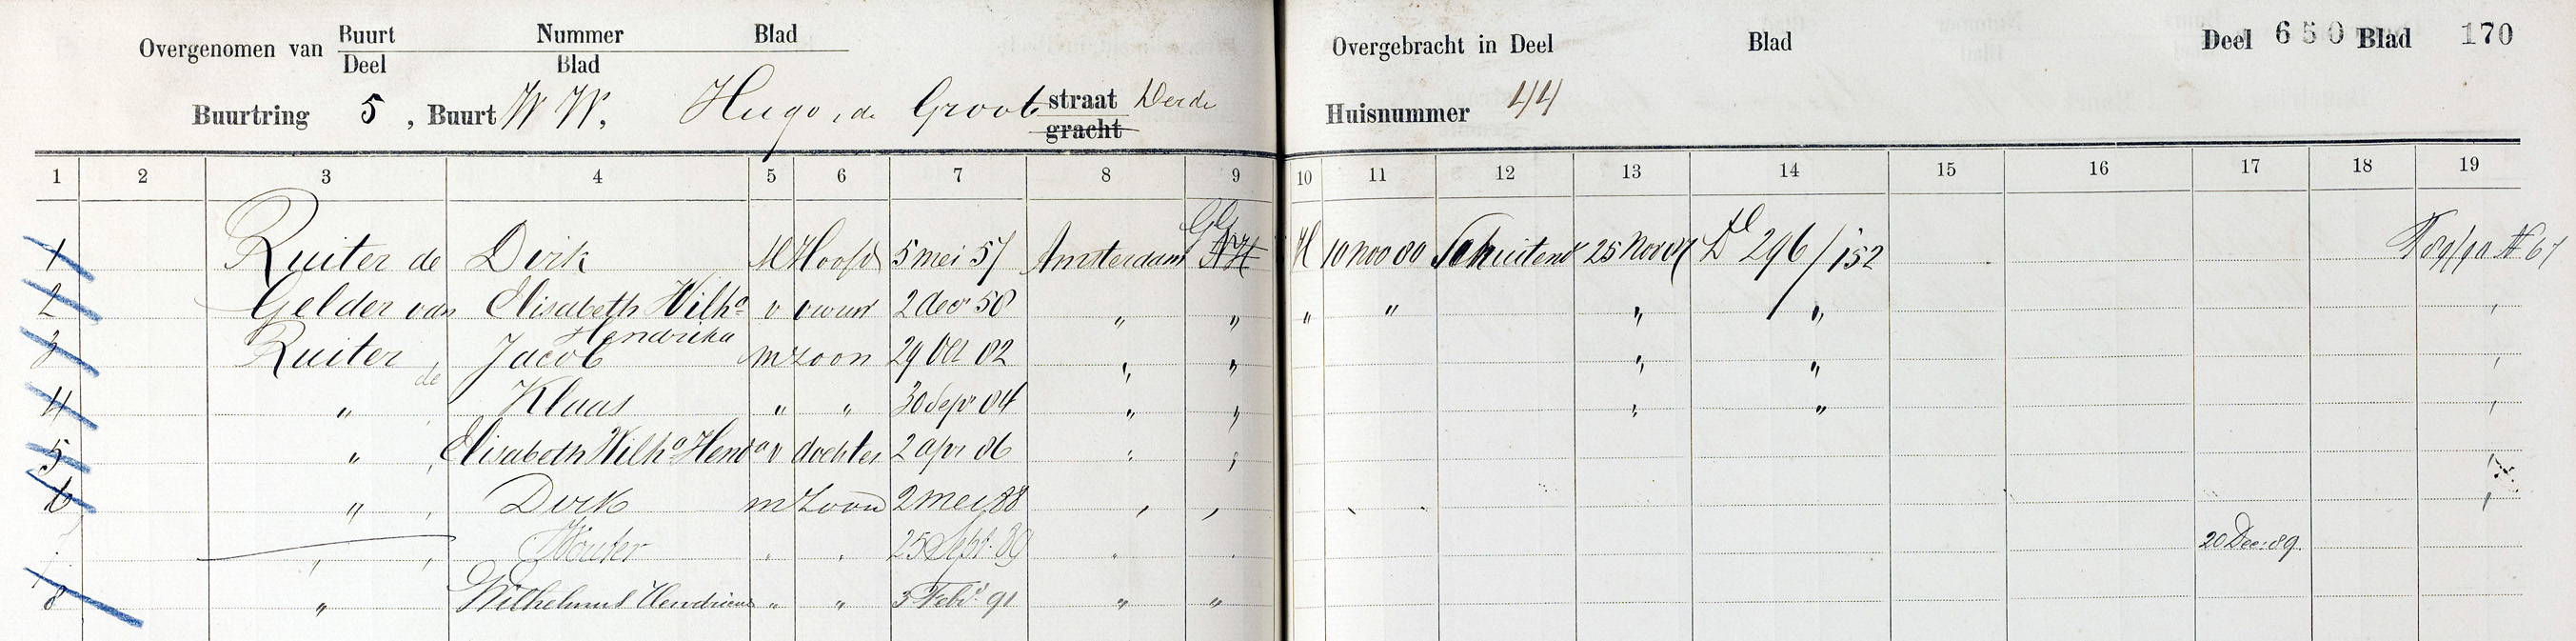 Overgenomen van Buurt Nummer Blad Overgebracht in Deel Blad Deel 650 Blad 170
Deel Blad
Buurtring 5, Buurt W W, Hugo de Groot straat Derde Huisnummer 44
gracht
1 2 3 4 5 6 7 8 9 10 11 12 13 14 15 16 17 18 19
1 Ruiter de Dirk M Hoofd 5 mei 57 Amsterdam GG NH H 10 nov 80 25 Nov 87 Dl 296/152
2 Gelder van Elisabeth Wilha v vrouw 2 dec 58 " " " " " "
Hendrika
3 Ruiter de Jacob m zoon 29 Oct 82 " " " "
4 " Klaas " " 30 Sepr 84 " " " "
5 " Elisabeth Wilha Henda v dochter 2 apr 86 " "
6 " Dirk m zoon 2 mei 88 " "
" Wouter " " 25 Sept. 89 " " 20 Dec. 89.
8 " Wilhelmus Hendricus " " 3 Febr. 91 " "